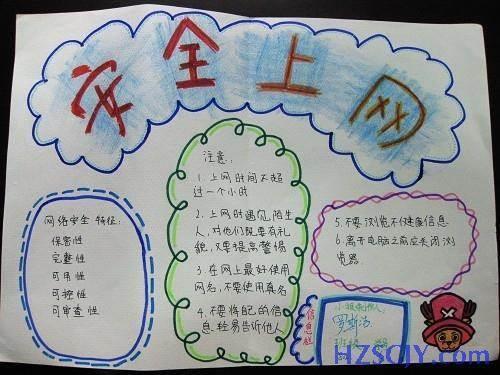 安全上网
网络安全 特征:
保密性
完整性
可用性
可控性
可审查性
注意:
1. 上网时间不超
过一个小时
2. 上网时遇见陌生
人,对他们既要有礼
貌,又要提高警惕
3. 在网上最好使用
网名,不要使用真名
4. 不要将自己的信
息轻易告诉他人
5. 不要浏览不健康信息
6. 离开电脑之前应关闭浏
览器
信息栏
班级
HZSQJY.com